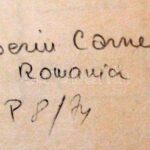 Carne
Romania
P 8/74